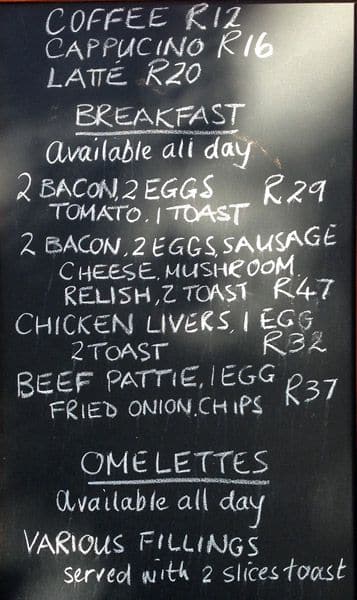 COFFEE R12
CAPPUCINO R16
LATTÉ R20
BREAKFAST
Available all day
2 BACON, 2 EGGS R29
TOMATO, 1 TOAST
2 BACON, 2 EGGS, SAUSAGE
CHEESE, MUSHROOM,
RELISH, 2 TOAST R47
CHICKEN LIVERS, 1 EGG
2 TOAST R32
BEEF PATTIE, 1 EGG R37
FRIED ONION, CHIPS
OMELETTES
Available all day
VARIOUS FILLINGS
served with 2 slices toast